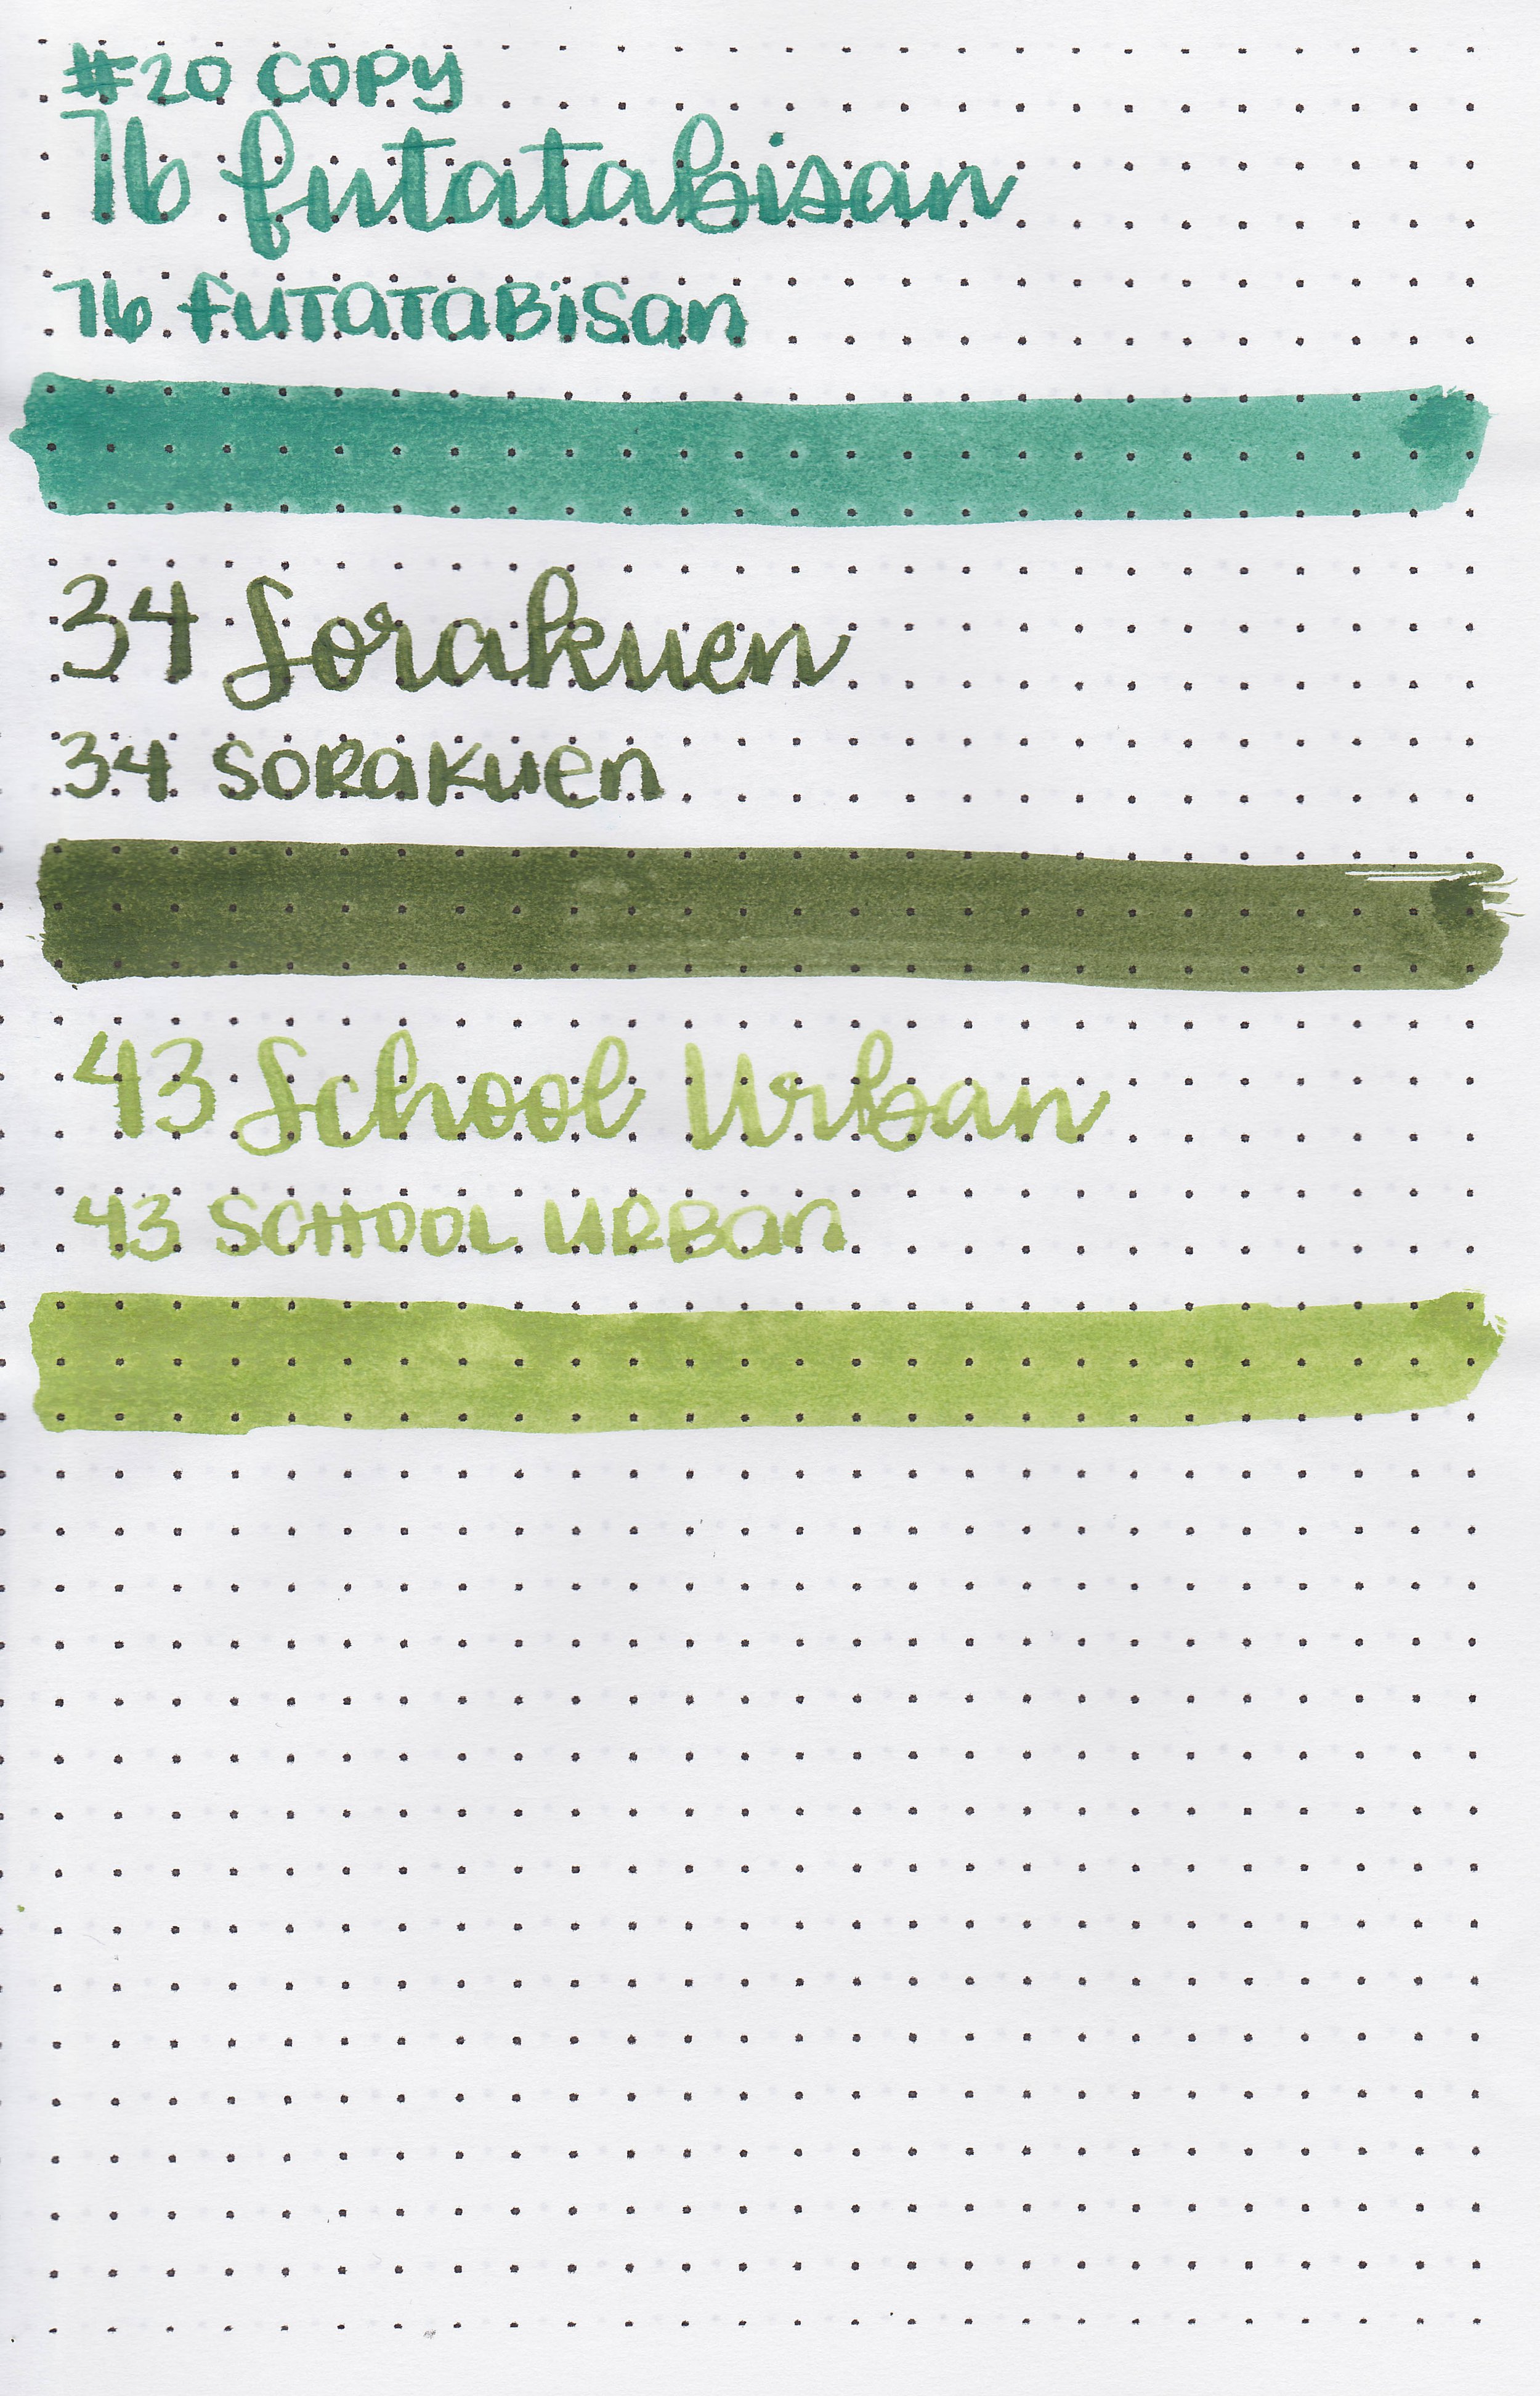 #20 COPY
76 futatabisan
76 FUTATABISAN
34 Sorakuen
34 SORAKUEN
43 School Urban
43 SCHOOL URBAN